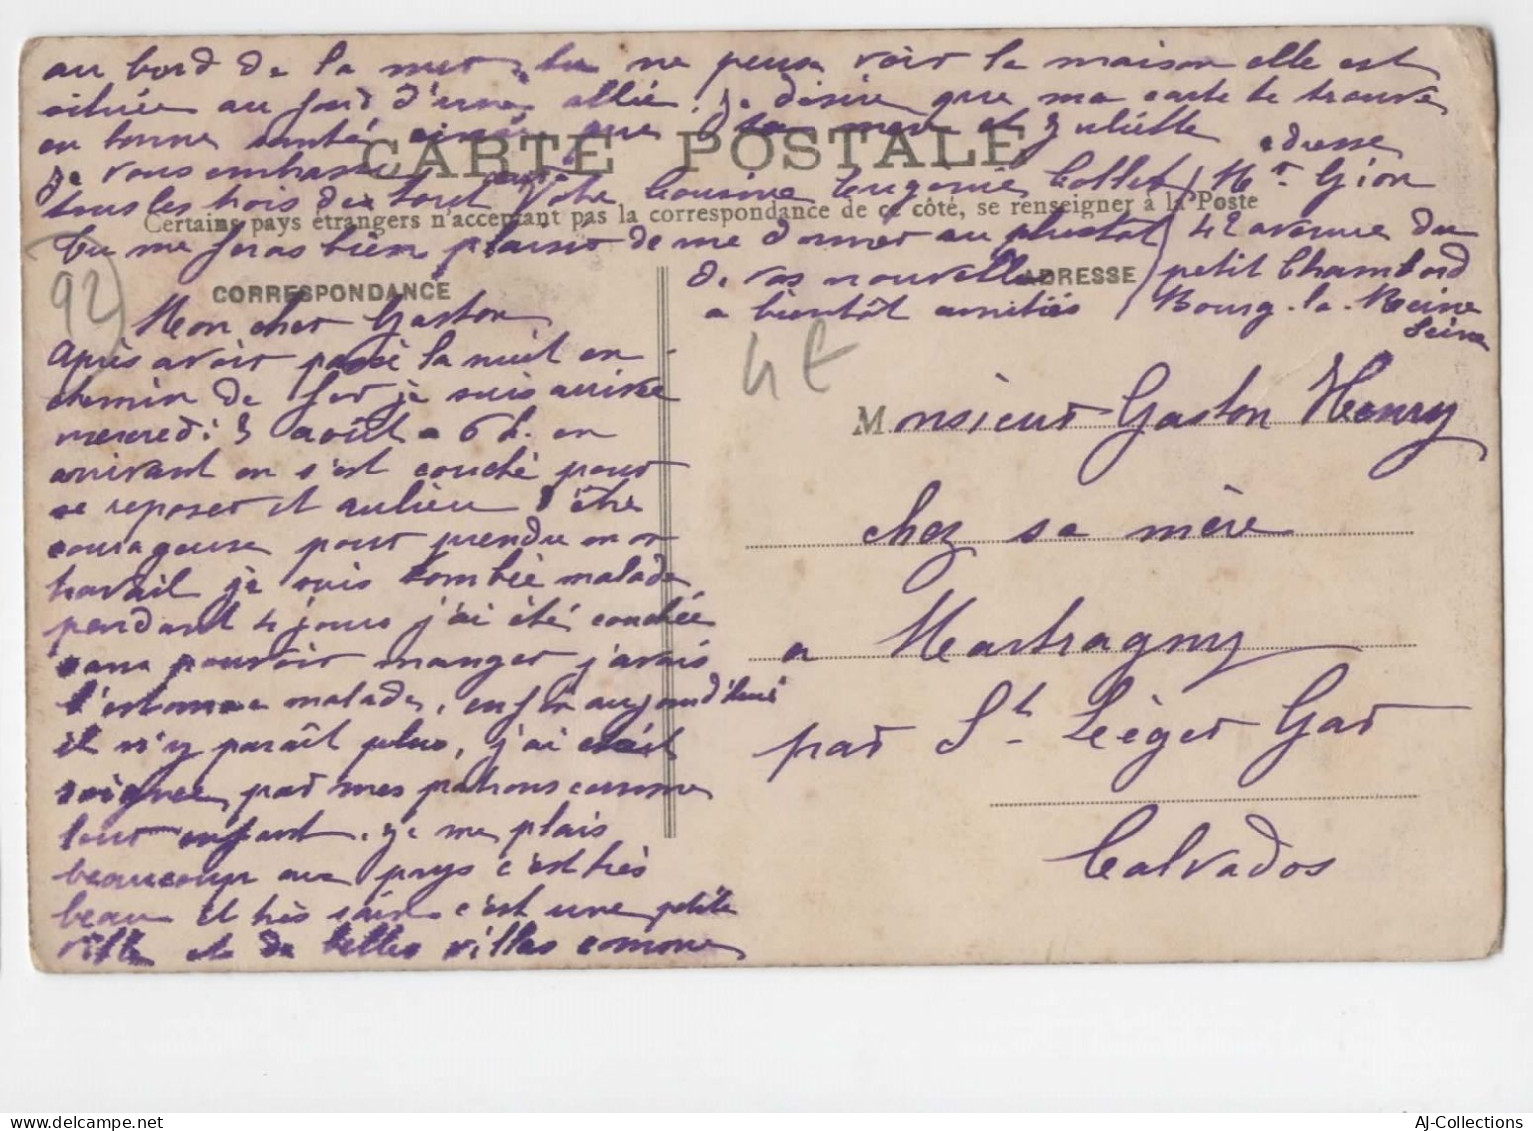 au bord de la mer, tu ne peux voir la maison elle est
située au fond d'une allée. Je désire que ma carte te trouve
en bonne santé ainsi que ta mère et Juliette
je vous embrasse
tous les trois de tout cœur Votre Cousine Eugénie Collet
tu me feras bien plaisir de me donner au plustôt
de vos nouvelles
a bientôt amitiés
adresse
Mr. Gion
42 avenue du
petit Chambord
Bourg-la-Reine
Seine
CARTE POSTALE
Certains pays étrangers n'acceptant pas la correspondance de ce côté, se renseigner à la Poste
CORRESPONDANCE
ADRESSE
92)
4 €
Mon cher Gaston
Après avoir passé la nuit en
chemin de fer je suis arrivée
mercredi 3 août a 6 h. en
arrivant on s'est couché pour
se reposer et aulieu d'être
courageuse pour prendre mon
travail je suis tombée malade
pendant 4 jours j'ai été couchée
sans pouvoir manger j'avais
l'estomac malade, enfin aujourd'hui
il n'y paraît plus, j'ai était
soignée par mes patrons comme
leur enfant. Je me plais
beaucoup au pays c'est très
beau et très sain c'est une petite
ville et de belles villas comme
Monsieur Gaston Henry
chez sa mère
a Martragny
par St. Léger Gar
Calvados
AJ-Collections